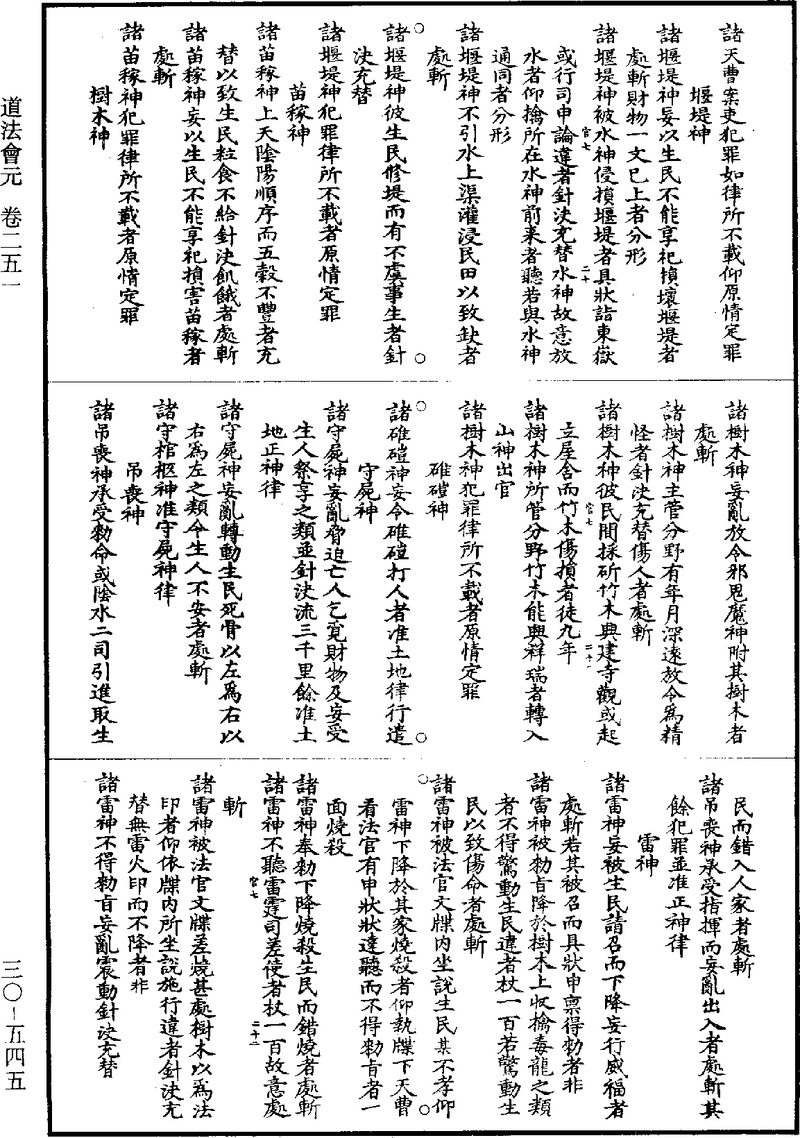 諸天曹案吏犯罪如律所不載仰原情定罪
堰堤神
諸堰堤神妄以生民不能享祀損壞堰堤者
處斬財物一文已上者分形
諸堰堤神被水神侵損堰堤者具狀詣東嶽
或行司申論違者針決充替水神故意放
水者仰擒所在水神前來者聽若與水神
通同者分形
諸堰堤神不引水上渠灌浸民田以致缺者
處斬
諸堰堤神彼生民修堤而有不虞事生者針
決充替
諸堰堤神犯罪律所不載者原情定罪
苗稼神
諸苗稼神上天陰陽順序而五穀不豐者充
替以致生民粒食不給針決飢餓者處斬
諸苗稼神妄以生民不能享祀損害苗稼者
處斬
諸苗稼神犯罪律所不載者原情定罪
樹木神
諸樹木神妄亂放令邪鬼魔神附其樹木者
處斬
諸樹木神主管分野有年月深遠放令為精
怪者針決充替傷人者處斬
諸樹木神彼民間採斫竹木興建寺觀或起
立屋舍而竹木傷損者徒九年
諸樹木神所管分野竹木能興祥瑞者轉入
山神出官
諸樹木神犯罪律所不載者原情定罪
碓磑神
諸碓磑神妄令碓磑打人者准土地律行遣
守屍神
諸守屍神妄亂脅迫亡人乞覓財物及妄受
生人祭享之類並針決流三千里餘准土
地正神律
諸守屍神妄亂轉動生民死骨以左為右以
右為左之類令生人不安者處斬
諸守棺柩神准守屍神律
吊喪神
諸吊喪神承受勑命或陰水二司引進取生
民而錯入人家者處斬
諸吊喪神承受指揮而妄亂出入者處斬其
餘犯罪並准正神律
雷神
諸雷神妄被生民請召而下降妄行威福者
處斬若其被召而具狀申稟得勑者非
諸雷神被勑旨降於樹木上收擒毒龍之類
者不得驚動生民違者杖一百若驚動生
民以致傷命者處斬
諸雷神被法官文牒內坐說生民某不孝仰
雷神下降於其家燒殺者仰執牒下天曹
看法官有申狀狀達聽而不得勑旨者一
面燒殺
諸雷神奉勑下降燒殺生民而錯燒者處斬
諸雷神不聽雷霆司差使者杖一百故意處
斬
諸雷神被法官文牒差燒甚處樹木以為法
印者仰依牒內所坐說施行違者針決充
替無雷火印而不降者非
諸雷神不得勑旨妄亂震動針決充替
道法會元 卷二五一
三〇-五四五